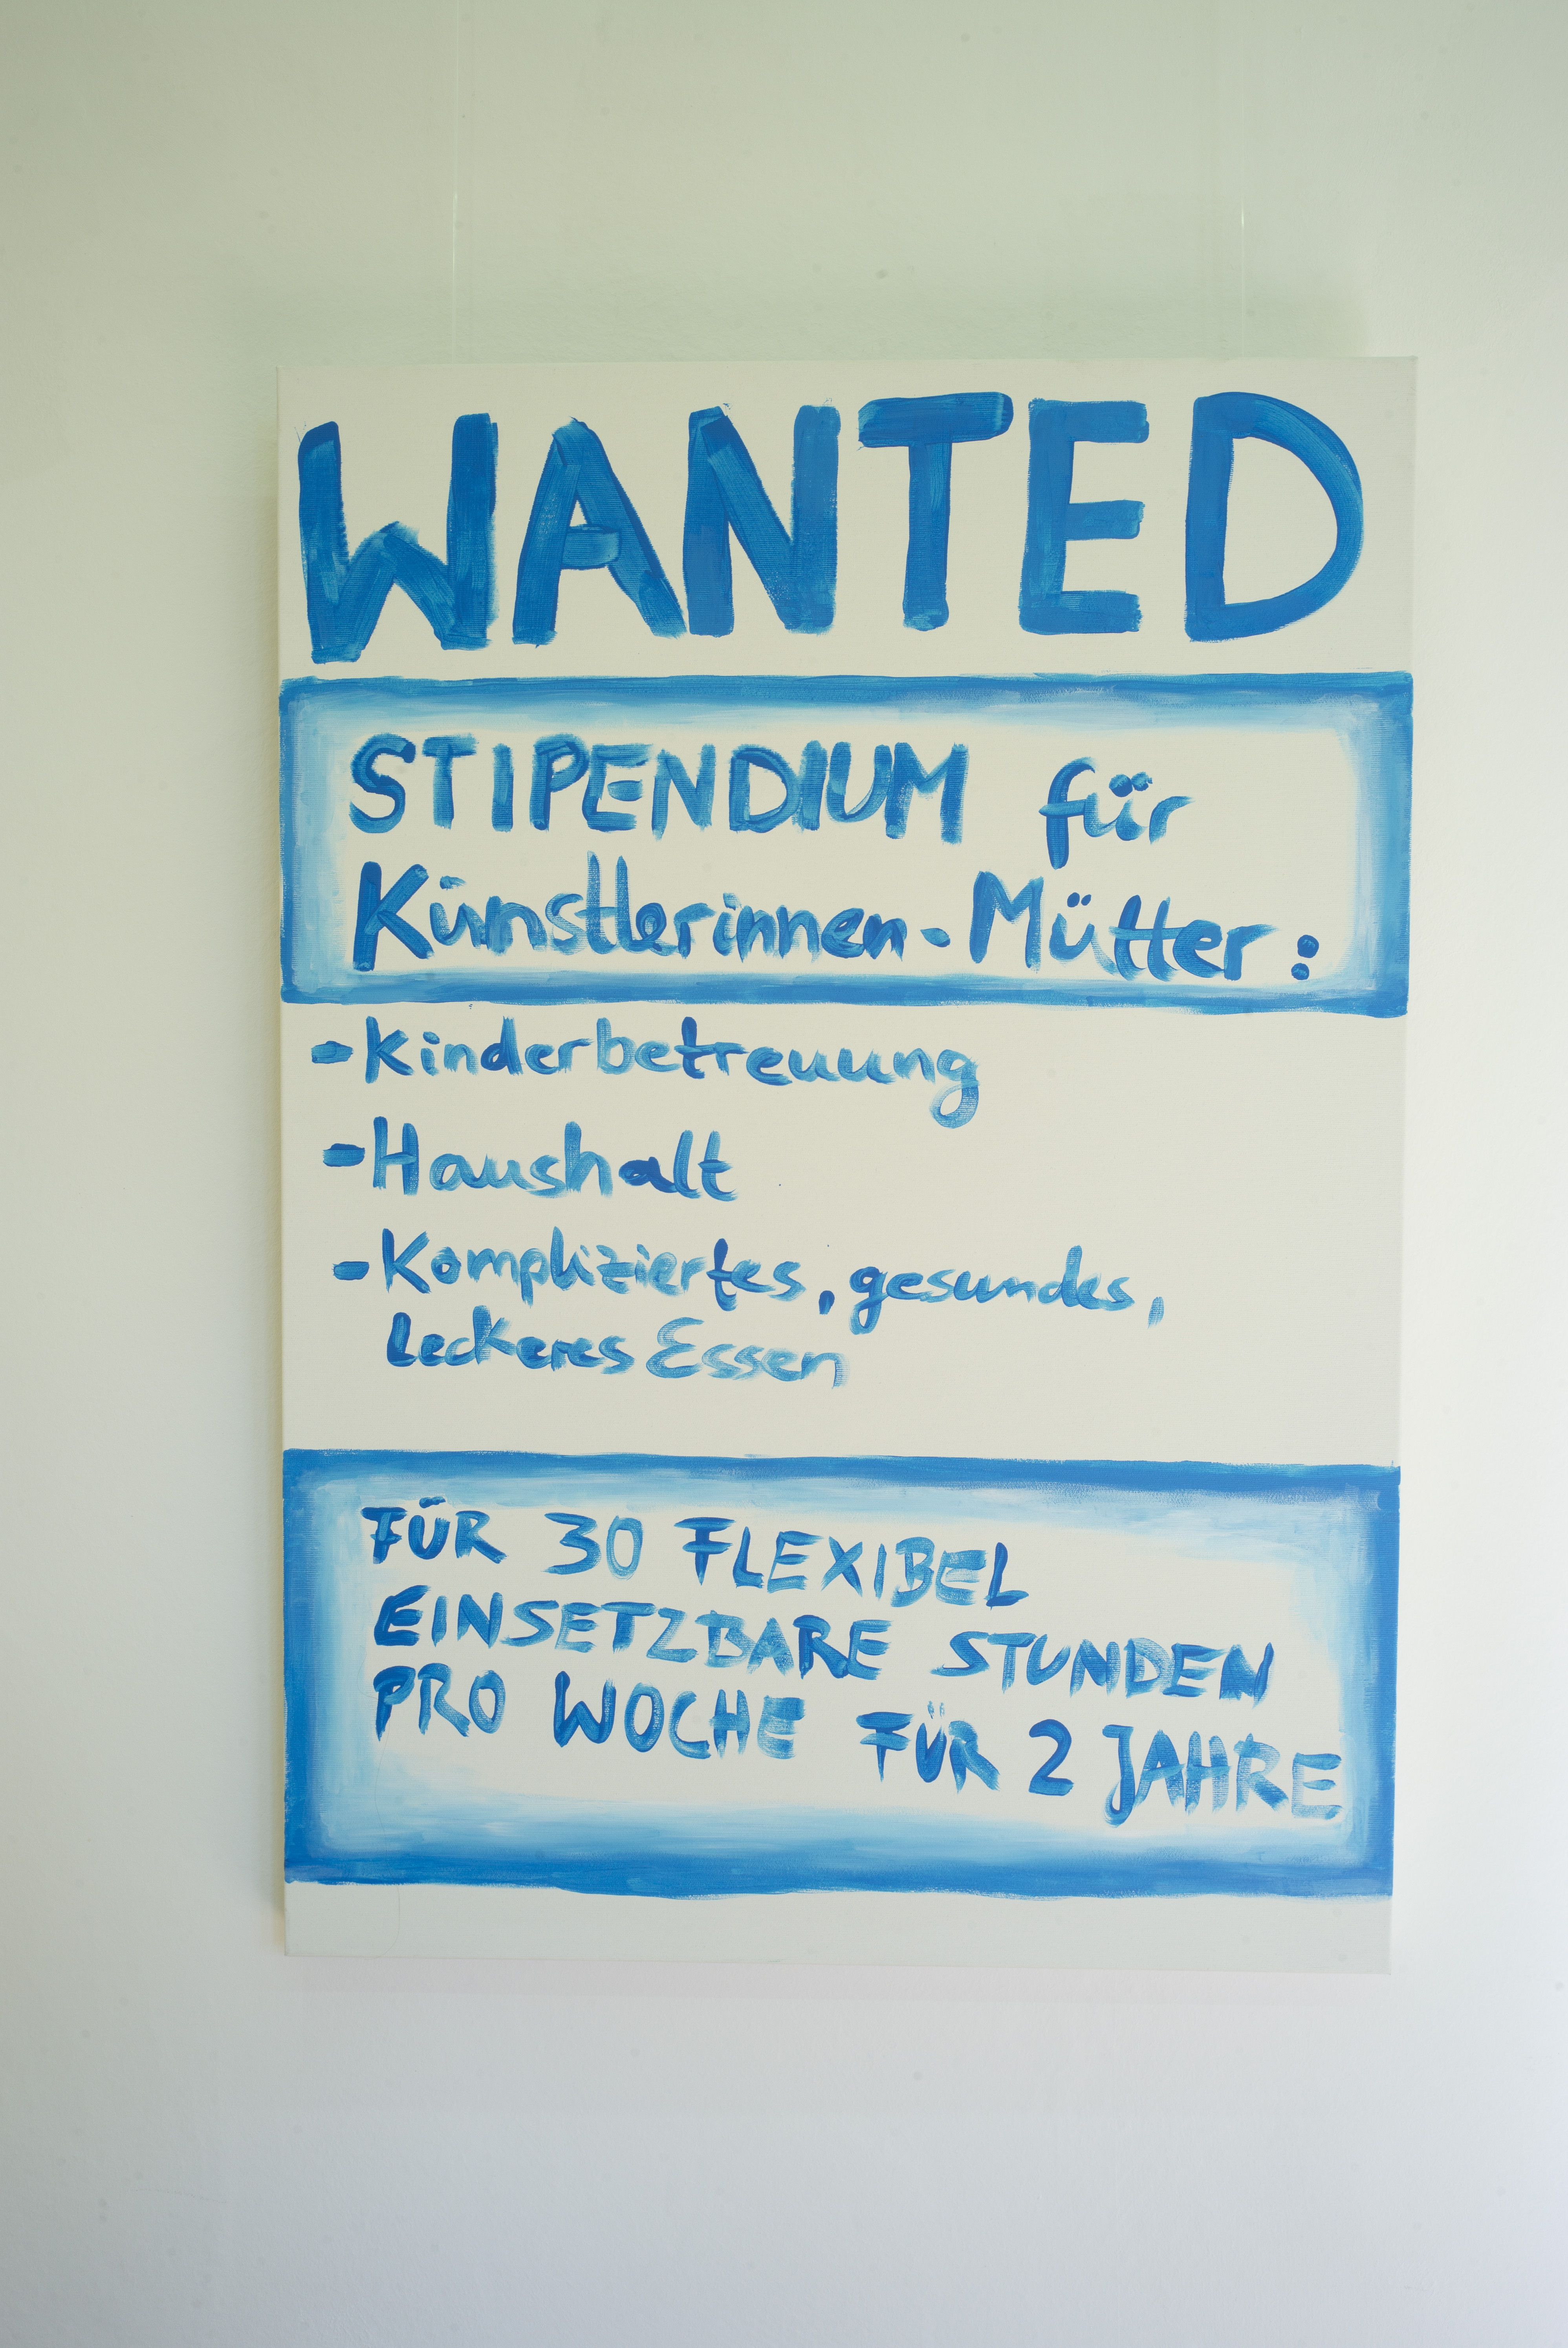 WANTED
STIPENDIUM für
Künstlerinnen-Mütter:
-Kinderbetreuung
-Haushalt
-Kompliziertes, gesundes,
leckeres Essen
FÜR 30 FLEXIBEL
EINSETZBARE STUNDEN
PRO WOCHE FÜR 2 JAHRE